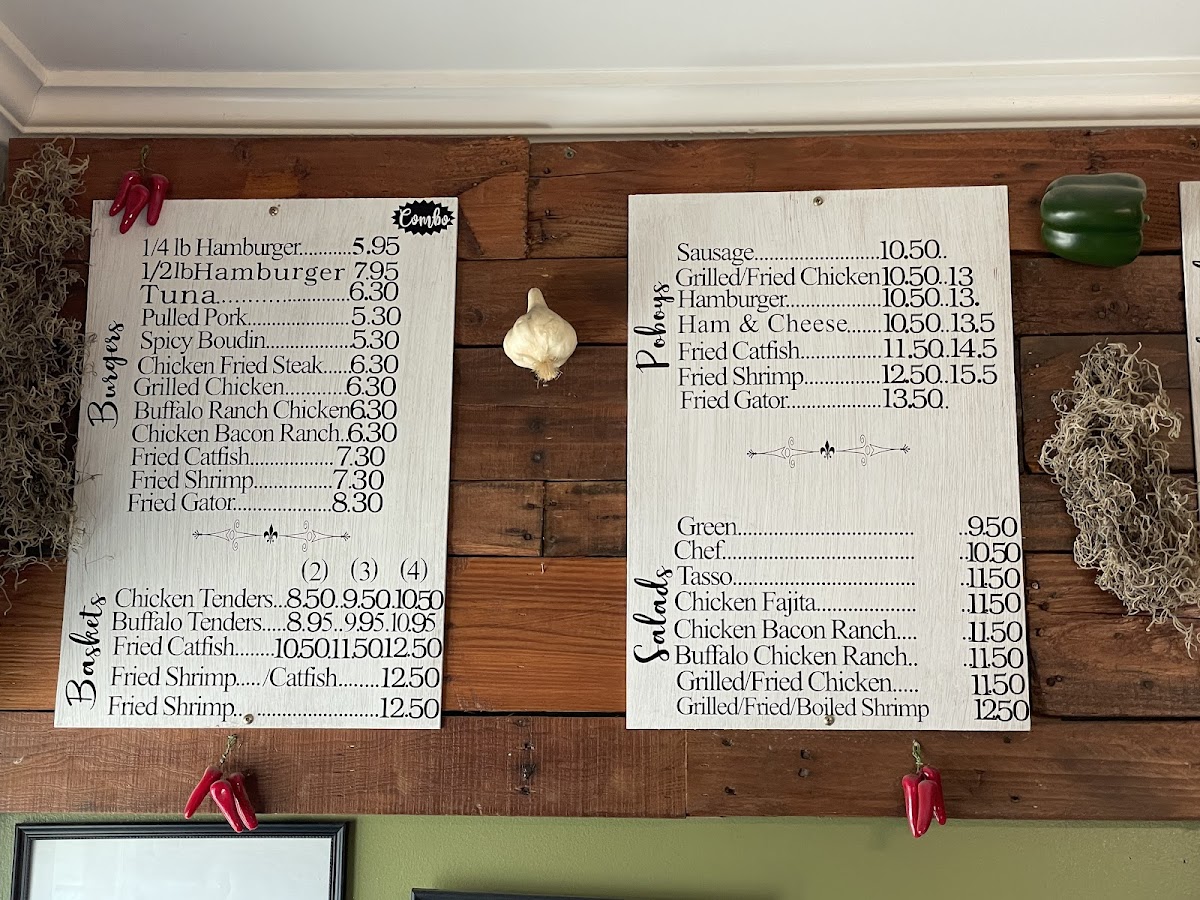 Combo
Burgers
1/4 lb Hamburger...........5.95
1/2lbHamburger 7.95
Tuna......................6.30
Pulled Pork....................5.30
Spicy Boudin.................5.30
Chicken Fried Steak.....6.30
Grilled Chicken............6.30
Buffalo Ranch Chicken6.30
Chicken Bacon Ranch..6.30
Fried Catfish................7.30
Fried Shrimp...............7.30
Fried Gator...................8.30
Baskets
(2) (3) (4)
Chicken Tenders...8.50..9.50.10.50
Buffalo Tenders.....8.95..9.95.10.95
Fried Catfish........10.5011.5012.50
Fried Shrimp...../Catfish........12.50
Fried Shrimp.. .......................12.50
Poboys
Sausage.........................10.50..
Grilled/Fried Chicken10.50..13
Hamburger...................10.50..13.
Ham & Cheese.......10.50..13.5
Fried Catfish................11.50.14.5
Fried Shrimp...............12.50..15.5
Fried Gator...................13.50..
Salads
Green.................................... ..9.50
Chef....................................... ..10.50
Tasso..................................... ..11.50
Chicken Fajita.................... ..11.50
Chicken Bacon Ranch.... ..11.50
Buffalo Chicken Ranch.. ..11.50
Grilled/Fried Chicken..... 11.50
Grilled/Fried/Boiled Shrimp 12.50